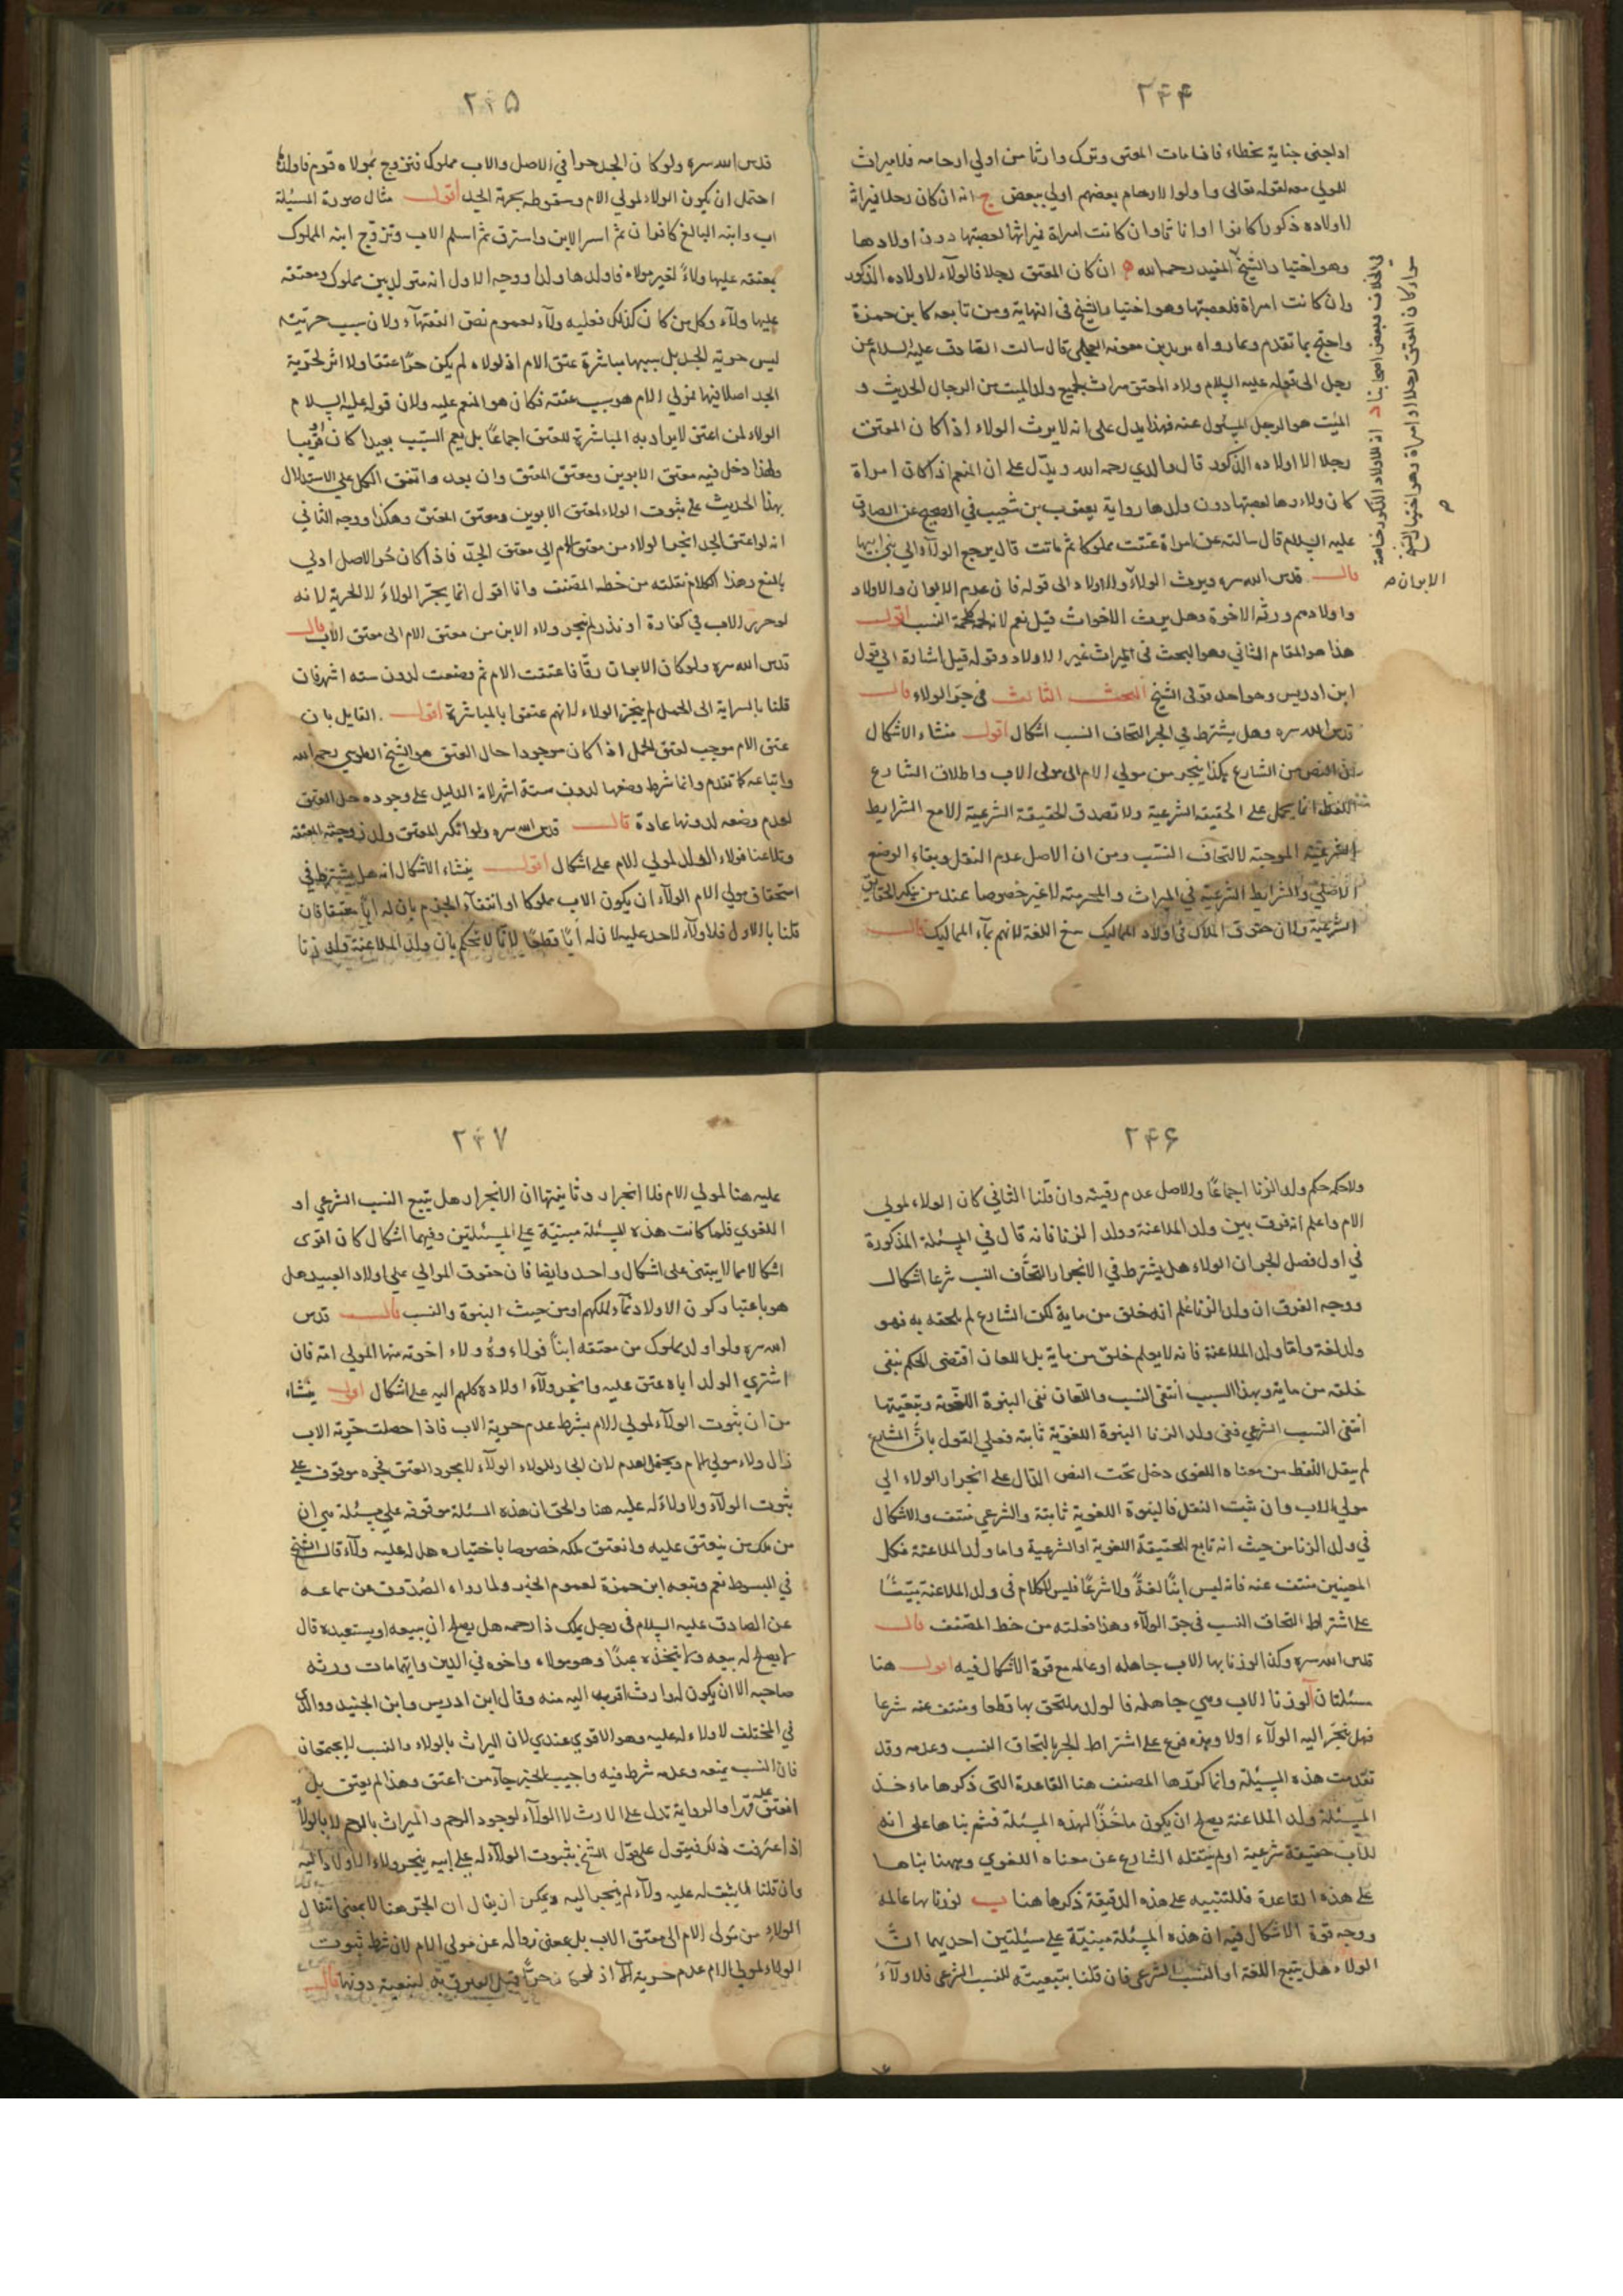 ۲۴۴
او جنى جناية بخطاء فاذا مات المعتق وترك وارثا من اولي ارحامه فلا ميراث
للمولى معه لقوله تعالى واولوا الارحام بعضهم اولي ببعض ج انه ان كان رجلا فميراثه
لاولاده ذكورا كانوا او اناثا وان كانت امراة فميراثها لعصبتها دون اولادها
وهو اختيار الشيخ المفيد رحمه الله ه ان كان المعتق رجلا فالولاء لاولاده الذكور
وان كانت امراة فلعصبتها وهو اختيار الشيخ في النهاية ومن تابعه كابن حمزة
واحتج بما تقدم وبما رواه بريد بن معوية العجلي قال سالت الصادق عليه السلام عن
رجل الى قوله عليه السلام ولاء المعتق ميراث لجميع ولد الميت من الرجال الحديث و
الميت هو الرجل المسئول عنه فهذا يدل على انه لا يورث الولاء اذا كان المعتق
رجلا الا اولاده الذكور قال والدي رحمه الله ويدل على ان المنعم اذا كان امراة
كان ولاءها لعصبتها دون ولدها رواية يعقوب بن شعيب في الصحيح عن الصادق
عليه السلام قال سالته عن امراة عتقت مملوكا ثم ماتت قال يرجع الولاء الى بني ابيها
قال قدس الله سره ويرث الولاء الاولاد الى قوله فان عدم الابوان والاولاد
واولادهم ورثه الاخوة وهل يرث الاخوات قيل نعم لانه لحمة كلحمة النسب اقول
هذا هو المقام الثاني وهو البحث في الميراث غير الاولاد وقوله قيل اشارة الى قول
ابن ادريس وهو احد قولى الشيخ البحث الثالث في جر الولاء قال
قدس الله سره وهل يشترط في الجر التحاق النسب اشكال اقول منشاء الاشكال
من النص من الشارع بكذا ينجر من مولى الام الى مولى الاب واطلاق الشارع
اللفظ انما يحمل على الحقيقة الشرعية ولا تصدق الحقيقة الشرعية الا مع الشرايط
الشرعية الموجبة لالتحاق النسب ومن ان الاصل عدم النقل وبقاء الوضع
الاصلي والشرايط الشرعية في الميراث والمحرمية لا غير خصوصا عند من ينكر الحقايق
الشرعية ولان حقوق الملاك في اولاد المماليك نسخ اللغة لانهم نماء المماليك قال
في الخلاف وبعض اصحابنا د انه للاولاد الذكور خاصة
سواء كان المعتق رجلا او امراة وهو اختيار الشيخ
الابوان صح
۲۴۵
قدس الله سره ولو كان الجد حرا في الاصل والاب مملوك فتزوج بمولاة قوم فاولدها
احتمل ان يكون الولاء لمولى الام وسقوطه بحرية الجد اقول مثال صورة المسئلة
اب وابنه البالغ كافران ثم اسر الابن واسترق ثم اسلم الاب وتزوج ابنه المملوك
بمعتقه عليها ولاء لغير مولاه فاولدها ولدا ووجه الاول انه متولد بين مملوك ومعتقه
عليها ولاء وكل من كان كذلك فعليه ولاء لعموم نص الفقهاء ولان سبب حريته
ليس حرية الجد بل سببها مباشرة عتق الام اذ لولاه لم يكن حرا عتقا ولا اثر لحرية
الجد اصلا فيها فمولى الام هو سبب عتقه فكان هو المنعم عليه ولان قوله عليه السلام
الولاء لمن اعتق لا يراد به المباشرة للعتق اجماعا بل يعم السبب بعيدا كان او قريبا
ولهذا دخل فيه معتق الابوين ومعتق المعتق وان بعد واتفق الكل على الاستدلال
بهذا الحديث على ثبوت الولاء لمعتق الابوين ومعتق المعتق وهكذا ووجه الثاني
انه لو اعتق الجد انجر الولاء من معتق الام الى معتق الجد فاذا كان حر الاصل اولى
بالمنع وهذا الكلام نقلته من خط المصنف وانا اقول انما يجر الولاء لا الحرية لانه
لو حرر الاب في كفارة او نذر لم ينجر ولاء الابن من معتق الام الى معتق الاب قال
قدس الله سره ولو كان الابوان رقا فاعتقت الام ثم وضعت لدون ستة اشهر فان
قلنا بالسراية الى الحمل لم ينجر الولاء لانهم عتقوا بالمباشرة اقول القايل بان
عتق الام موجب لعتق الحمل اذا كان موجودا حال العتق هو الشيخ الطوسي رحمه الله
واتباعه كما تقدم وانما شرط وضعها لدون ستة اشهر لانه الدليل على وجوده حال العتق
لعدم وضعه لدونها عادة قال قدس الله سره ولو انكر المعتق ولد زوجته المعتقة
وتلاعنا فولاء الولد لمولى الام على اشكال اقول ينشاء الاشكال انه هل يشترط في
استحقاق مولى الام الولاء ان يكون الاب مملوكا او انتفاء الجزم بان له ابا عتيقا فان
قلنا بالاول فلا ولاء لاحد عليه لان له ابا قطعا لانا لا نحكم بان ولد الملاعنة ولد زنا
۲۴۶
ولا حكمه حكم ولد الزنا اجماعا والاصل عدم رقيته وان قلنا الثاني كان الولاء لمولى
الام واعلم انه فرق بين ولد الملاعنة وولد الزنا فانه قال في المسئلة المذكورة
في اول فصل الجر ان الولاء هل يشترط في الانجرار التحاق النسب شرعا اشكال
ووجه الفرق ان ولد الزنا علم انه خلق من مايه لكن الشارع لم يلحقه به فهو
ولد لغة واما ولد الملاعنة فانه لا يعلم خلق من مايه بل اللعان اقتضى الحكم بنفي
خلقه من مايه وبهذا السبب انتفى النسب واللعان نفى البنوة اللغوية وتبعيتها
انتفى النسب الشرعي ففي ولد الزنا البنوة اللغوية ثابتة فعلى القول بان الشارع
لم ينقل اللفظ من معناه اللغوي دخل تحت النص الدال على انجرار الولاء الى
مولى الاب وان ثبت النقل فالبنوة اللغوية ثابتة والشرعي منتف والاشكال
في ولد الزنا من حيث انه تابع للحقيقة اللغوية او الشرعية واما ولد الملاعنة فكل
المعنيين منتف عنه فانه ليس ابنا لغة ولا شرعا فليس الكلام في ولد الملاعنة مبنيا
على اشتراط التحاق النسب في جر الولاء وهذا نقلته من خط المصنف قال
قدس الله سره وكذا لو زنا بها الاب جاهله او عالمه مع قوة الاشكال فيه اقول هنا
مسئلتان آ لو زنا الاب وهي جاهلة فالولد ملتحق بها قطعا ومنتف عنه شرعا
فهل ينجر اليه الولاء اولا وهذه فرع على اشتراط الجر بالتحاق النسب وعدمه وقد
تقدمت هذه المسئلة وانما كررها المصنف هنا القاعدة التي ذكرها ماخذ
المسئلة ولد الملاعنة يصلح ان يكون ماخذا لهذه المسئلة فثم بناها على انه
للاب حقيقة شرعية او لم ينقله الشارع عن معناه اللغوي وههنا بناها
على هذه القاعدة فللتنبيه على هذه الدقيقة ذكرها هنا ب لو زنا بها عالمه
ووجه قوة الاشكال فيه ان هذه المسئلة مبنية على مسئلتين احديهما ان
الولاء هل يتبع اللغة او النسب الشرعي فان قلنا بتبعيته للنسب الشرعي فلا ولاء
۲۴۷
عليه هنا لمولى الام فلا انجرار وثانيتها ان الانجرار هل يتبع النسب الشرعي او
اللغوي فلما كانت هذه المسئلة مبنية على المسئلتين وفيهما اشكال كان اقوى
اشكالا مما لا يبتنى على اشكال واحد وايضا فان حقوق الموالي على اولاد العبيد هل
هو باعتبار كون الاولاد نماء لملكهم او من حيث البنوة والنسب قال قدس
الله سره ولو اولد مملوك من معتقه ابنا فولاءه وولاء اخوته منها لمولى امه فان
اشترى الولد اباه عتق عليه وانجر ولاء اولاده كلهم اليه على اشكال اقول ينشاء
من ان ثبوت الولاء لمولى الام بشرط عدم حرية الاب فاذا حصلت حرية الاب
زال ولاء مولى الام ويحتمل العدم لان الجار للولاء الولاء لا مجرد العتق فجره موقوف على
ثبوت الولاء ولا ولاء له عليه هنا والحق ان هذه المسئلة موقوفة على مسئلة هي ان
من ملك من ينعتق عليه وانعتق بملكه خصوصا باختياره هل له عليه ولاء قال الشيخ
في المبسوط نعم وتبعه ابن حمزة لعموم الخبر ولما رواه الصدوق عن سماعه
عن الصادق عليه السلام في رجل يملك ذا رحمه هل يصلح ان يبيعه او يستعبده قال
لا يصلح له بيعه ولا يتخذه عبدا وهو مولاه واخوه في الدين وايهما مات ورثه
صاحبه الا ان يكون له وارث اقرب اليه منه وقال ابن ادريس وابن الجنيد ووالدي
في المختلف لا ولاء له عليه وهو الاقوى عندي لان الميراث بالولاء والنسب لا يجتمعان
فان النسب يمنعه وعدمه شرط فيه واجيب الخبر جاء من اعتق وهذا لم يعتق بل
انعتق عليه قهرا والرواية تدل على الارث لا الولاء لوجود الرحم والميراث بالرحم لا بالولاء
اذا عرفت ذلك فنقول على قول الشيخ بثبوت الولاء له على ابيه ينجر ولاء الاولاد اليه
وان قلنا لا يثبت له عليه ولاء لم ينجر اليه ويمكن ان يقال ان الجر هنا لا بمعنى انتقال
الولاء من مولى الام الى معتق الاب بل بمعنى زواله عن مولى الام لان شرط ثبوت
الولاء لمولى الام عدم حرية الاب